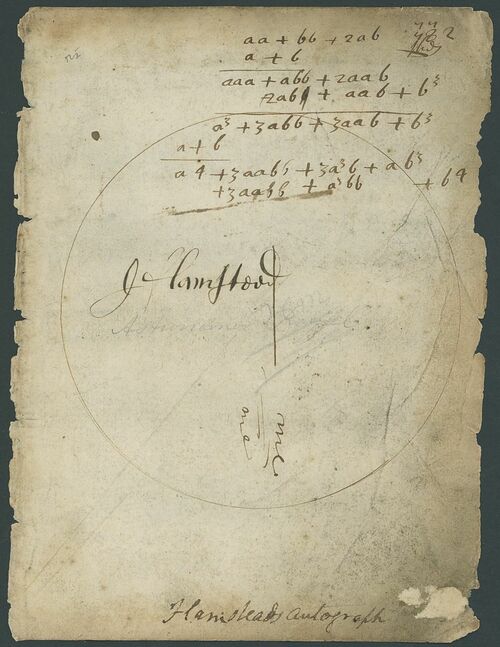 aa + bb + 2ab
a + b
aaa + abb + 2aab
2abb + aab + b³
a³ + 3abb + 3aab + b³
a + b
a4 + 3aabb + 3a³b + ab³
+ 3aabb + a³bb + b4
J Flamsteed
me
me
Flamsteads autograph